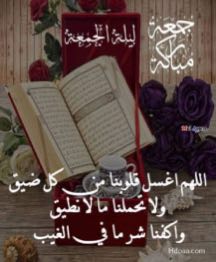 جمعة
مباركة
ليلة الجمعة
اللهم اغسل قلوبنا من كل ضيق
ولا تحملنا ما لا نطيق
واكفنا شر ما في الغيب
Hdoaa.com